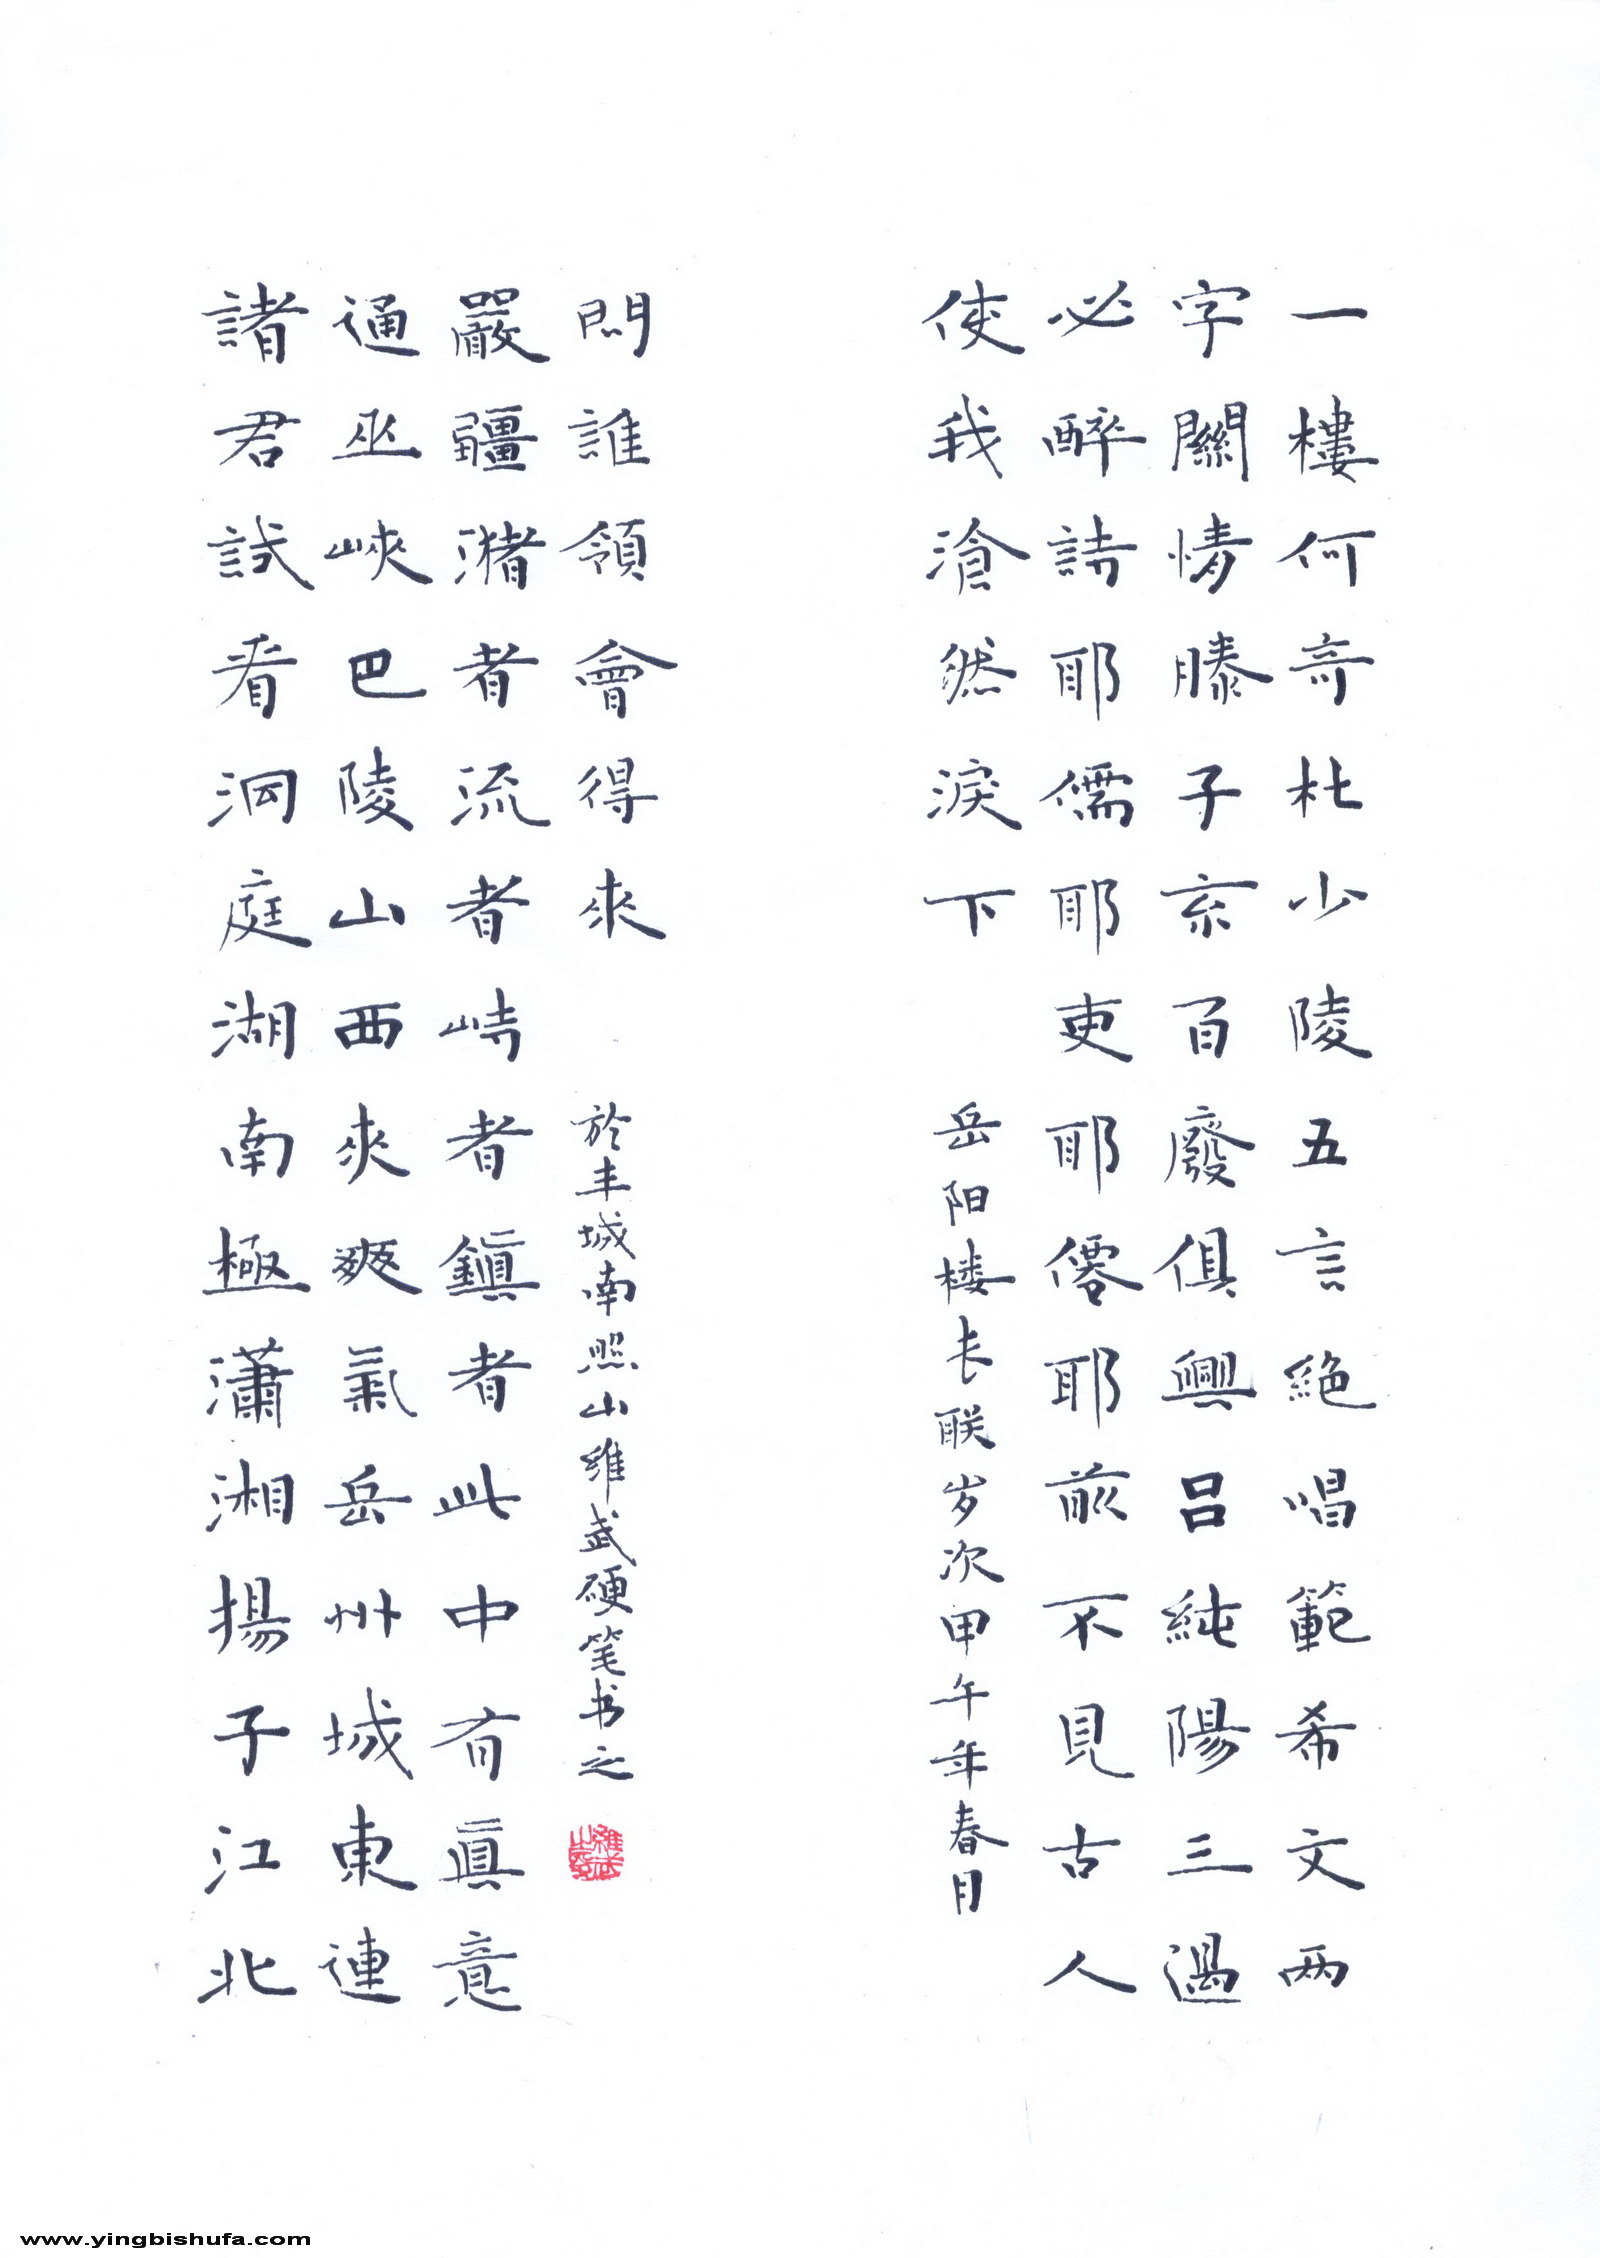 一樓何奇杜少陵五言絶唱範希文两
字關情滕子京百廢俱興吕純陽三過
必醉詩耶儒耶耶吏耶僊耶前不見古人
使我滄然淚下
岳阳楼长联岁次甲午年春月
諸君試看洞庭湖南極瀟湘揚子江北
通巫峽巴陵山西來爽氣岳州城東連
嚴疆瀦者流者峙者鎮者此中有眞意
問誰領會得來
於丰城南照山维武硬笔书之
www.yingbishufa.com